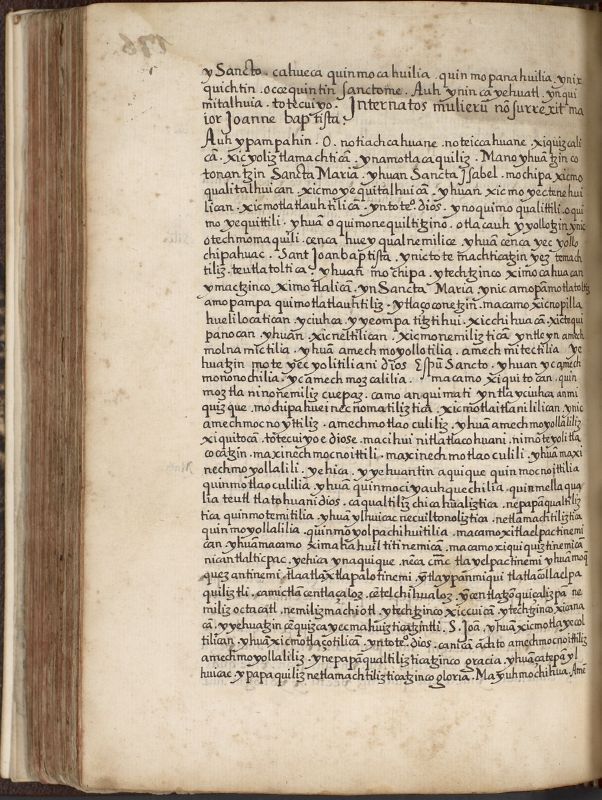 176
y Sancto. cahueca quinmoca huilia. quin mo pana huilia. yn ix
quichtin. occequintin sanctome. Auh ynin ca yehuatl. yn qui
mitalhuia. totecuiyo. Inter natos mulierũ nõ surrexit ma
ior Joanne baptista.
Auh ypampahin. O. notlachcahuane. noteiccahuane. xiquizcali
cã. xicyoliztlamachticã. ynamotlacaquiliz. Mano yhuãtzinco
tonantzin Sancta Maria. yhuan Sancta Isabel. mochipa xicmo
qualitalhuican. xicmoyequitalhuicã. yhuan xicmoyectenehui
lican. xicmotlatlauhtilicã. yntoteº dios. ynoquimo qualittili. oqui
mo yequittili. yhuã oquimonequiltitzino. otlacauh yyollotzin. ynic
otechmomaquili. cenca huey qualnemilice. yhuã cenca yec yollo
chipahuac. Sant Joan baptista. ynictote
tiliz. teutlatoltica. yhuan mochipa. ytechtzinco ximocahuacan
ymactzinco. ximotlalicã. yn Sancta Maria. ynic amopãmotlatoltiz
amopampa quimotlatlauhtiliz. ytlaçoconetzin. macamo xicnopilla
huelilocatican. yciuhca. xicchihuacã. xictequi
panocan. yhuãn. xicneltilican. xicmonemilizticã. yntleyn amech
molnamictilia. yhuã amechmoyollotilia. amechmitectilia. ye
huatzin mote yec yolitiliani dios Espũ Sancto. yhuan ycamech
mononochilia. ycamechmozcalilia. macamo xiquitocan. quin
moztla ninonemilizcuepaz. camo anquimati yntla yciuhca anmi
quizque. mochipahueinecnomatiliztica. xicmotlaitlanililican. ynic
amechmocnoyttiliz. amechmotlaoculiliz. yhuã amechmoyollaliliz
xiquitocã. totecuiyoe diose. macihui nitlatlacohuani. nimoteyolitla
cocatzin. maxinechmocnoittili. maxinechmotlaoculili. yhuã maxi
nechmoyollalili. yehica. yyehuantin aquique quinmocnoittilia
quinmotlaoculilia. yhuã quinmociyauhquechilia. quinmellaqua
lia teutl tlatohuani dios. caqualtiliz chicahualiztica. nepapãqualtiliz
tica quinmotemitilia. yhuã ylhuicac necuiltonoliztica. netlamachtiliztica
quinmoyollalilia. quinmoyolpachihuitilia. macamo xitlaelpactinemi
can. yhuãmacamo ximahahuiltitinemicã. macamo xiquiquiztinemicã
nican tlalticpac. yehica ynaquique. nica cmc tlayelpactinemi yhuã moq
quilizтli. camictlãcentlaçaloz. cẽtelchihualoz. ycentlaçoqui
miliz octacatl. nemilizmachiotl. ytechtzinco xiccuicã. ytechtzinco xicana
cã. yyehuatzin cẽquizca yecmahuiztic S. Joã. yhuã xicmotlayecol
tilican. yhuã xicmotlaçotilicã. yntoteº. dios. canicã achto amechmocnoittiliz
amechmoyollaliliz. ynepapãqualtiliztica gracia. yhuãçatepã yl
huicac. ypapaquiliz netlamachtiliztica gloria. Ma yuhmochihua. Amẽ